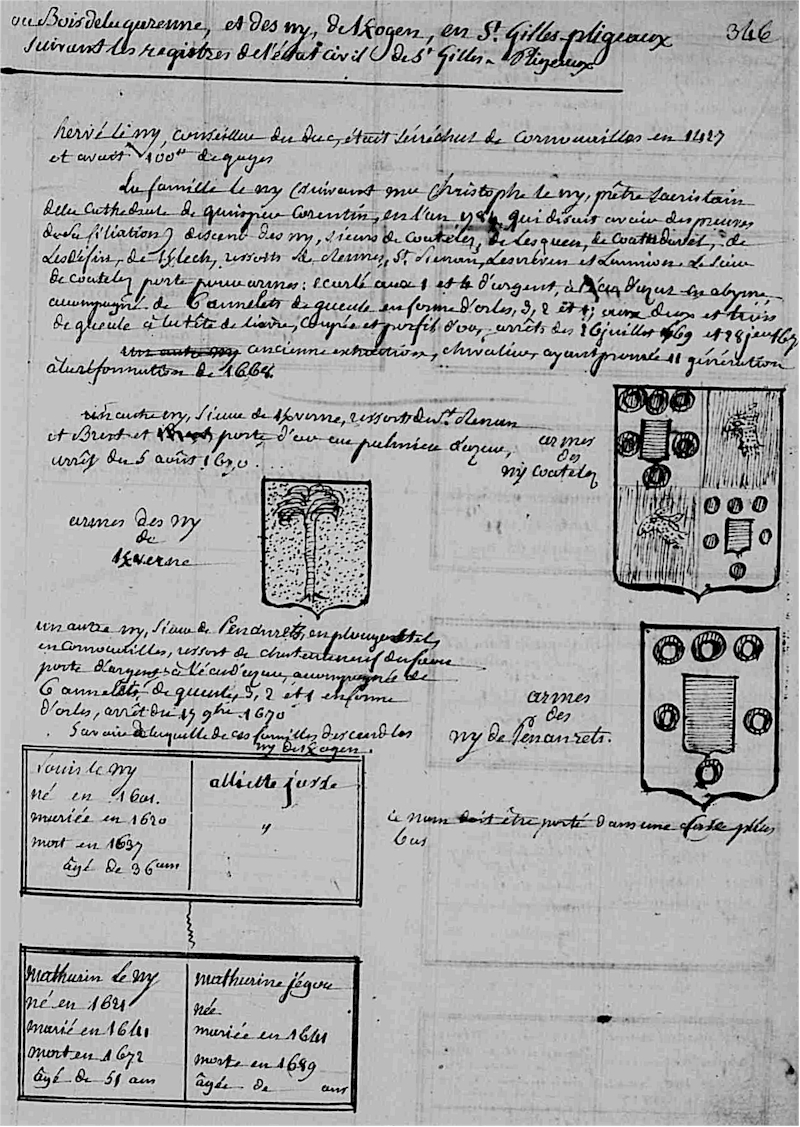 ou Bois de la garenne, et des ny, de Kogen, en St. Gilles-pligeaux 346
suivant les registres de l'état civil de St Gilles-Pligeaux
hervé le ny, conseiller du duc, était sénéchal de Cornouailles en 1427
et avait 100tt de gages
La famille le ny (suivant mre Christophe le ny, prêtre sacristain
de la Cathédrale de quimper Corentin, en l'an 178 , qui disait avoir des preuves
de sa filiation) descend des ny, sieurs de Coatelez, de Lesquen, de Coatudavel, de
de , ressorts de Rennes, St. Renan, Lesneven et Lannion. Le sieur
de coatelez porte pour armes: ecartelé aux 1 et 4 d'argent, à l'écu d'azur en abyme,
accompagné de 6 annelets de gueule en forme d'orles, 3, 2 et 1; aux deux et trois
de gueule à la tête de lièvre, coupée et porfil d'or, arrêts des 16 juillet 1669 et 28
un autre ny ancienne extraction, chevalier, ayant prouvé 11 génération
à la réformation de 1668.
un autre ny, sieur de Kverne, ressort de St. Renan
et Brest et porte d'or au palmier d'azur,
arrêt du 5 août 1670.
armes
des
ny Coatelez
armes des ny
de
Kverne
un autre ny, sieur de Penanrets, en
en cornouailles, ressort de chateauneuf du faou
porte d'argent à l'écu d'azur, accompagné de
6 annelets de gueule, 3, 2 et 1 en forme
d'orles, arrêt du 17 9bre 1670
Savoir de laquelle de ces familles descend les
ny de Kogen.
armes
des
ny de Penanrets.
Louis le ny
né en 1601.
mariée en 1620
mort en 1637
âgé de 36 ans
alliette josse
"
ce nom doit être porté dans une case plus
bas
Mathurin Le ny
né en 1621
marié en 1641
mort en 1672
âgé de 51 ans
mathurine jégou
née
mariée en 1641
morte en 1689
âgée de ans